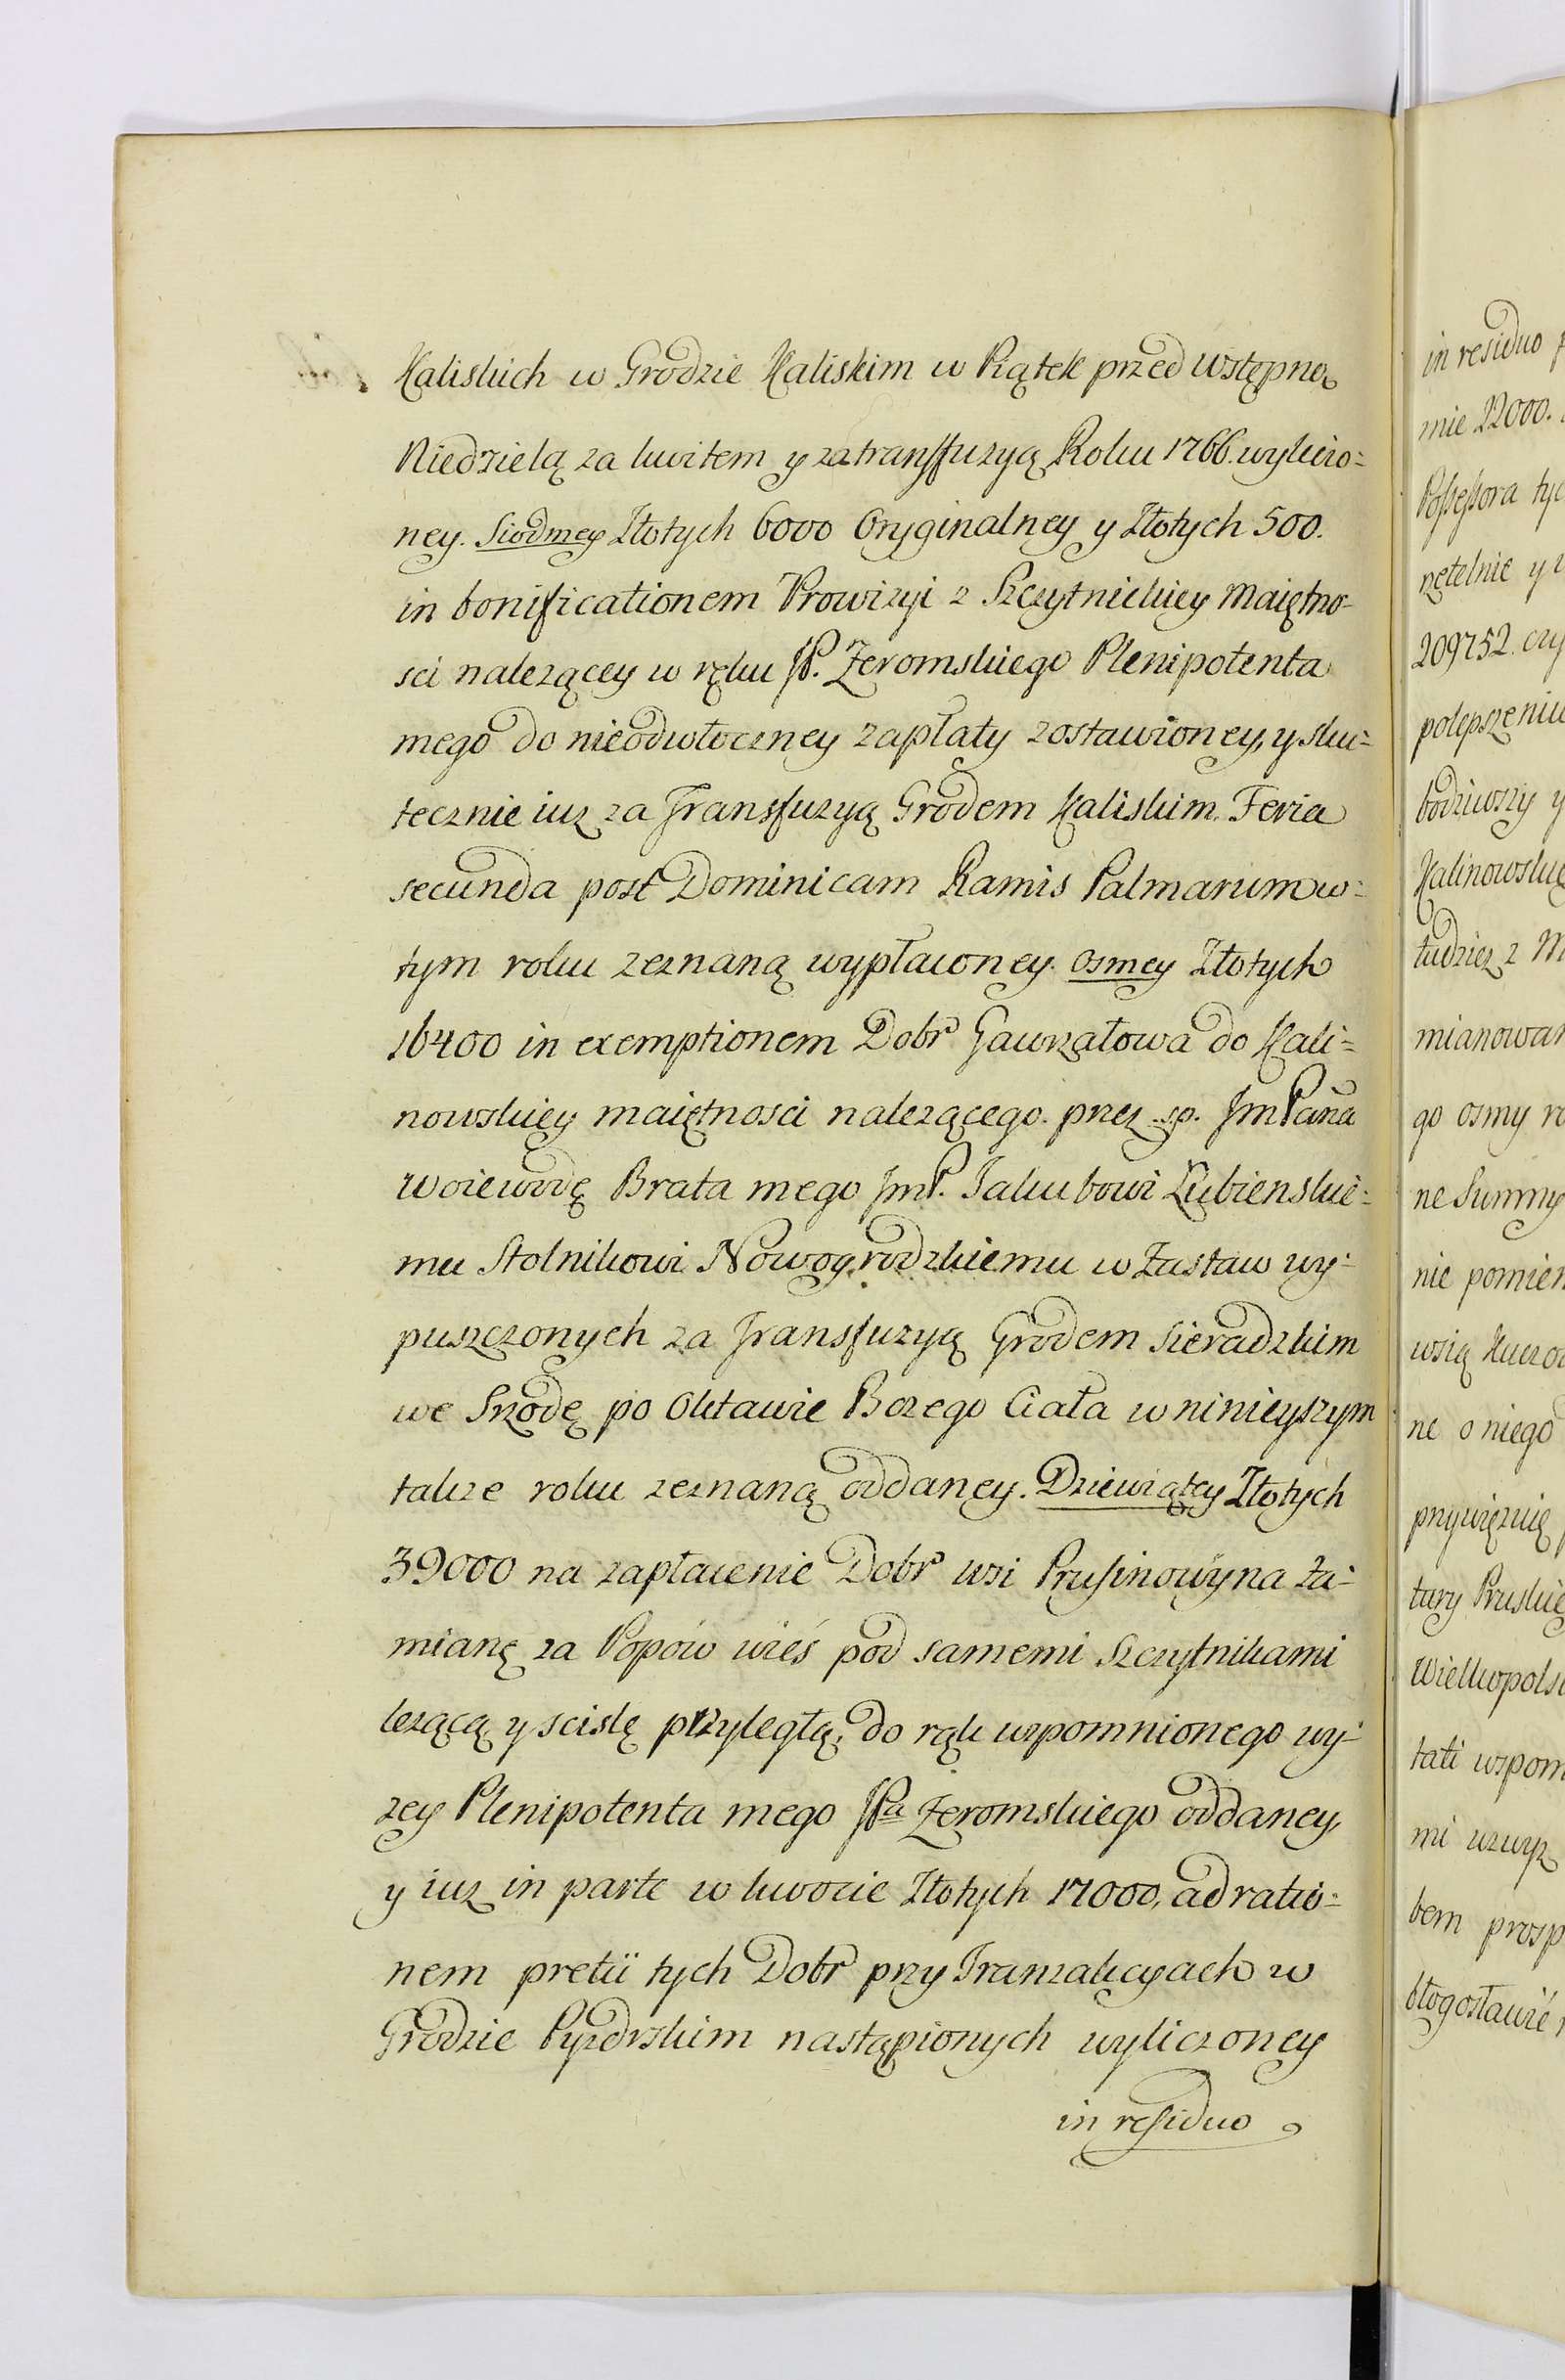 Kaliskich w Grodzie Kaliskim w Piątek przed Wstępną
Niedzielą za kwitem y za transfuzyą Roku 1766. wyliczo=
ney. Siodmey Złotych 6000 Oryginalney y Złotych 500.
in bonificationem Prowizyi z Szczytnickiey Maiętno-
sci nalezącey w ręku JP. Zeromskiego Plenipotenta
mego do nieodwłoczney zapłaty zostawioney, y sku=
tecznie iuz za Transfuzyą Grodem Kaliskim. Feria
secunda post Dominicam Ramis Palmarum w=
tym roku zeznaną wypłaconey. Osmey Złotych
16400 in exemptionem Dobr Gawrzałowa do Kali=
nowskiey maiętnosci nalezącego. przez s.p. JmPana
Woiewodę Brata mego JmP. Jakubowi Łubienskie=
mu Stolnikowi Nowogrodzkiemu w Zastaw wy=
puszczonych za Transfuzyą Grodem Sieradzkim
we Srzodę po Oktawie Bozego Ciała w ninieyszym
takze roku zeznaną oddaney. Dziewiątey Złotych
39000 na zapłacenie Dobr wsi Prusinowy na Za=
mianę za Popów wieś pod samemi Szczytnikami
lezącą y scislę przyległą, do rąk wspomnionego wy=
zey Plenipotenta mego JPa Zeromskiego oddaney,
y iuz in parte w kwocie Złotych 17000, ad ratio=
nem pretii tych Dobr przy Tranzakcyach w
Grodzie Pyzdrskim nastąpionych wyliczoney
in residuo
in residuo
mie 22000.
Possessora
rzetelnie y
209752.
bodziwszy y
tudziez z
go osmy
ne Summy
ne o niego
tati
mi
bem